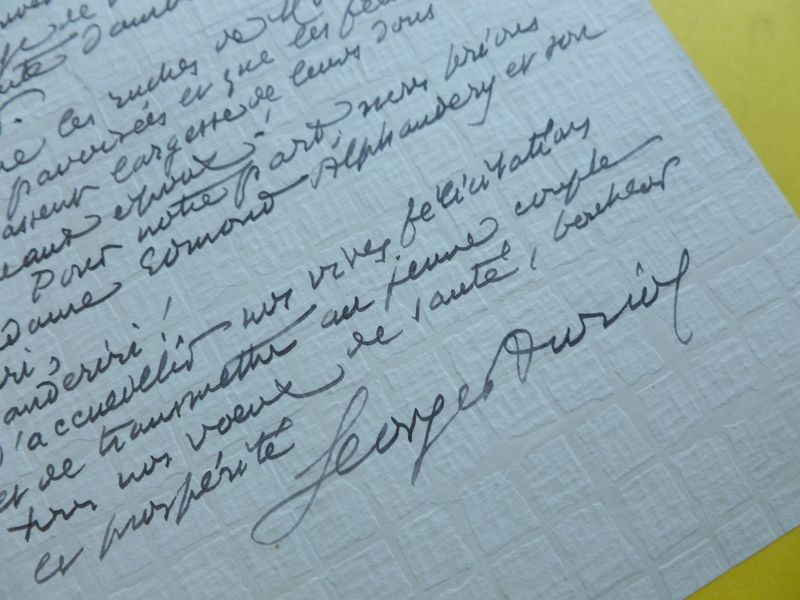 de
te d'am
que les ruches de M
pavoisées et que les fé
assent largesse de leurs dons
eaux époux!
Pour notre part, nous prions
dame Edmond Alphandéry et son
ri,
anderiri!
d'accueillir nos vives félicitations
et de transmettre au jeune couple
tous nos voeux de santé, bonheur
et prospérité
Georges Duriol